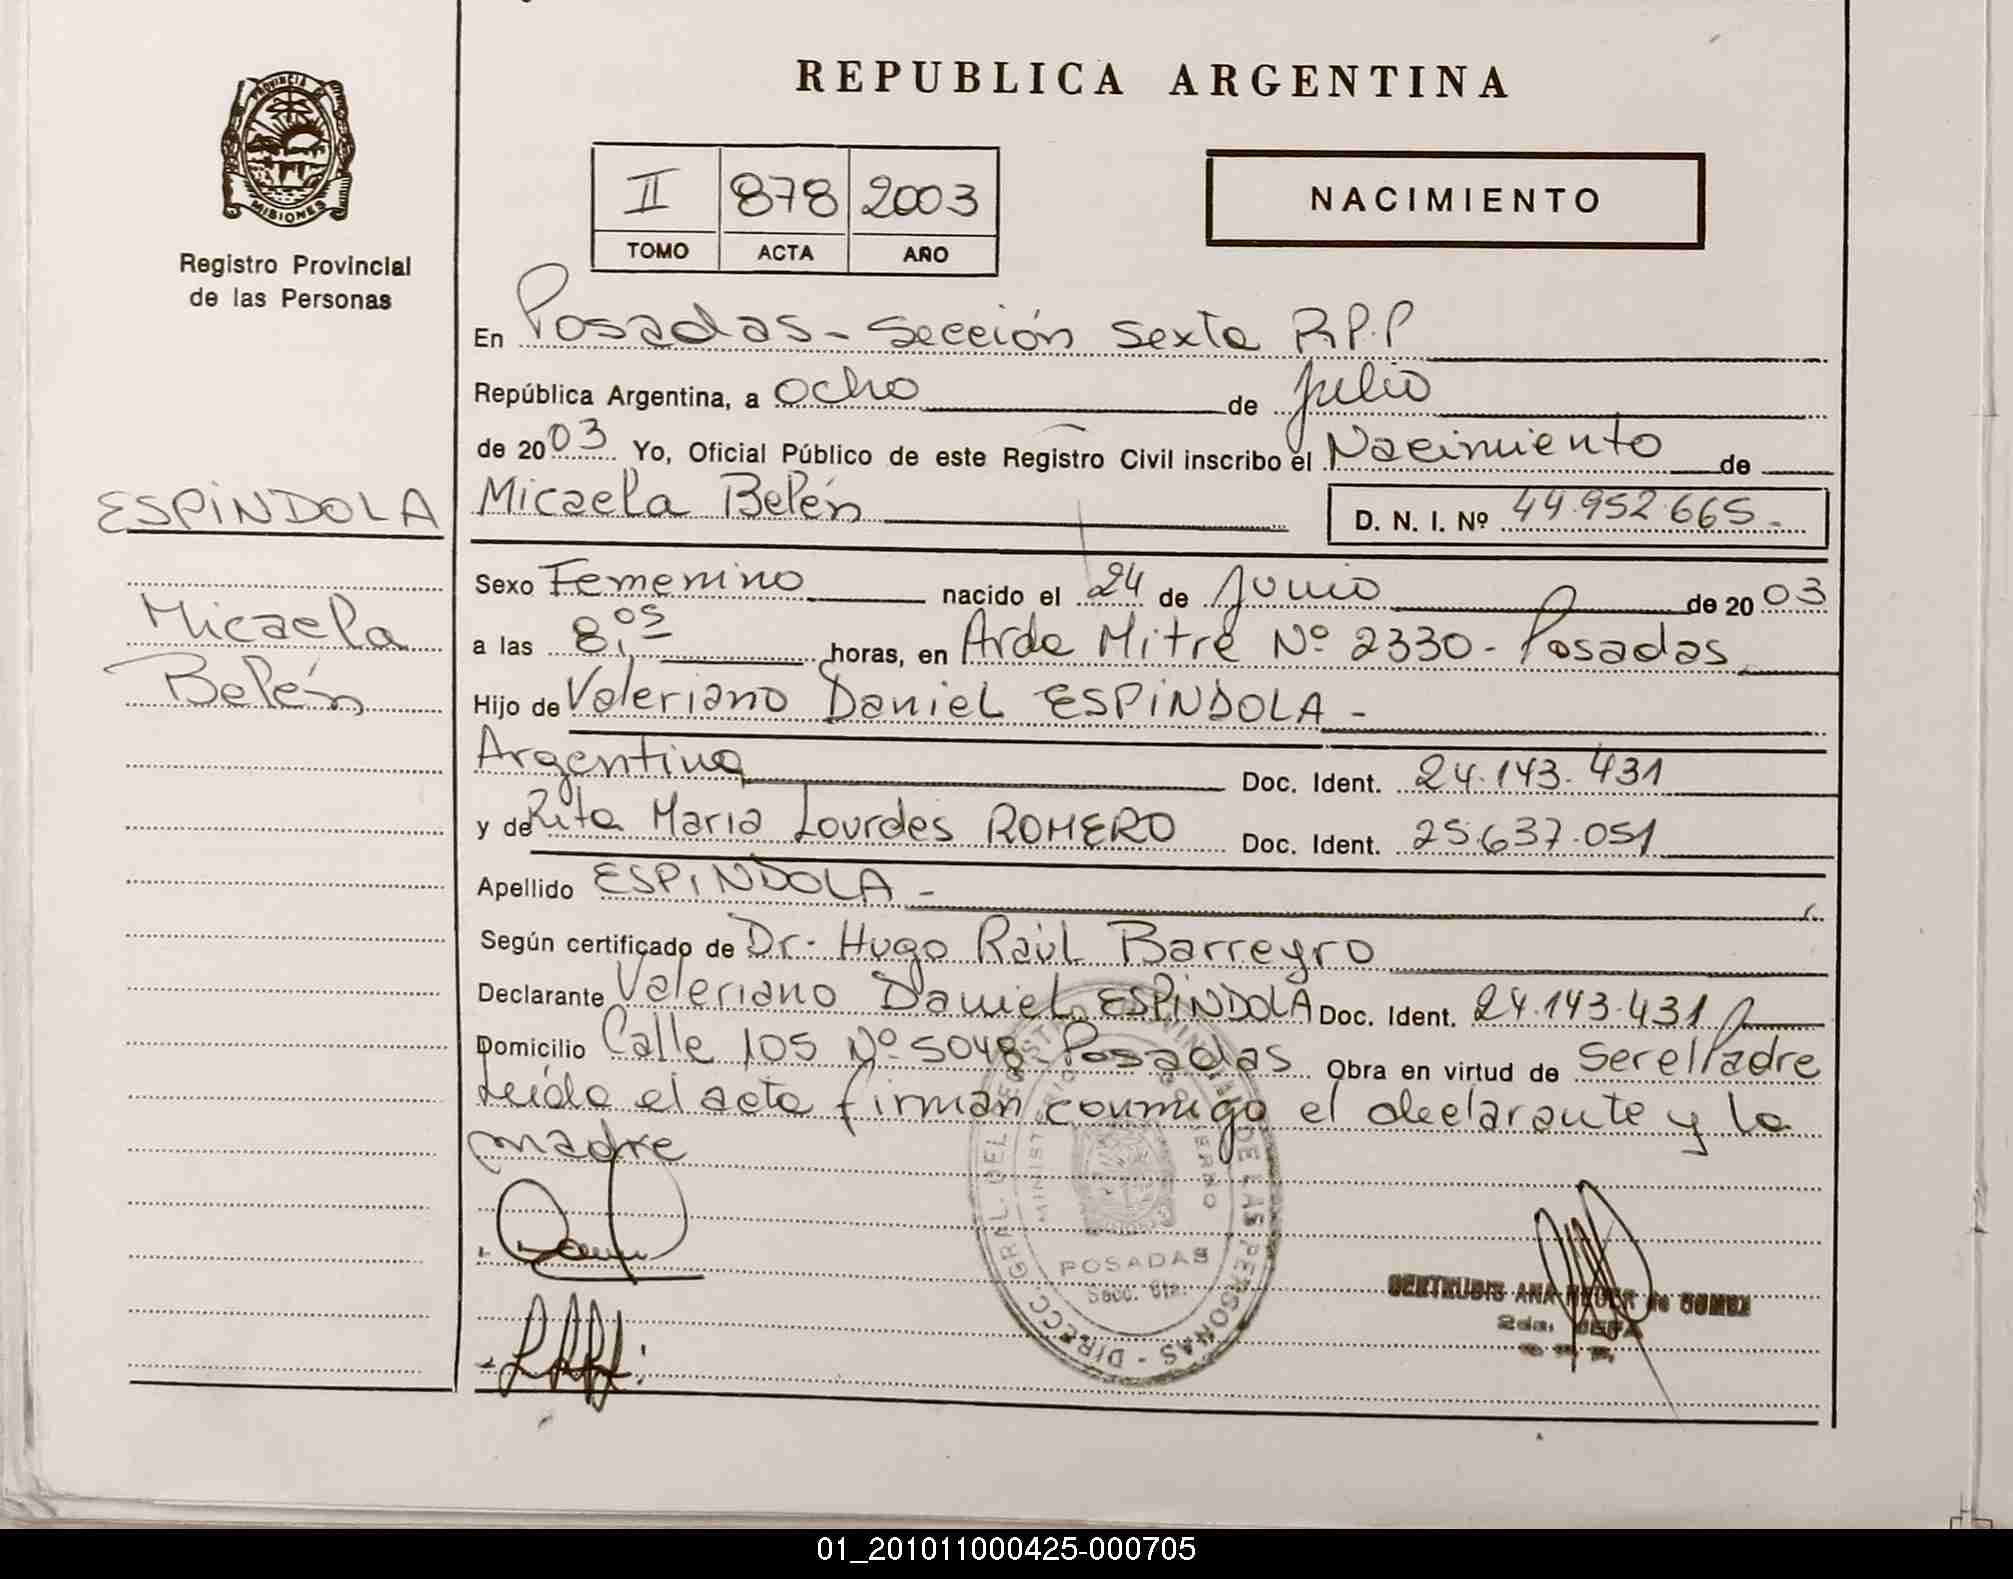 REPUBLICA ARGENTINA
PROVINCIA DE
MISIONES
Registro Provincial
de las Personas
II 878 2003
TOMO ACTA AÑO
NACIMIENTO
En Posadas - Sección Sexta R.P.P
República Argentina, a ocho de Julio
de 2003 Yo, Oficial Público de este Registro Civil inscribo el Nacimiento de
ESPINDOLA
Micaela Belén D. N. I. Nº 44.952.665.-
Sexo Femenino nacido el 24 de Junio de 2003
Micaela
a las 8,05 horas, en Avda Mitre Nº 2330 - Posadas
Belén
Hijo de Valeriano Daniel ESPINDOLA -
Argentina Doc. Ident. 24.143.431
y de Rita Maria Lourdes ROMERO Doc. Ident. 25.637.051
Apellido ESPINDOLA -
Según certificado de Dr. Hugo Raúl Barreyro
Declarante Valeriano Daniel ESPINDOLA Doc. Ident. 24.143.431
Domicilio Calle 105 Nº 5048 - Posadas Obra en virtud de Ser el Padre
Leída el acta firman conmigo el declarante y la
madre
DIRECC. GRAL. DEL REGISTRO PROVINCIAL DE LAS PERSONAS -
MINISTERIO DE GOBIERNO
POSADAS
Secc. 6ta.
GERTRUDIS ANA de GOMEZ
2da. JEFA
01_201011000425-000705